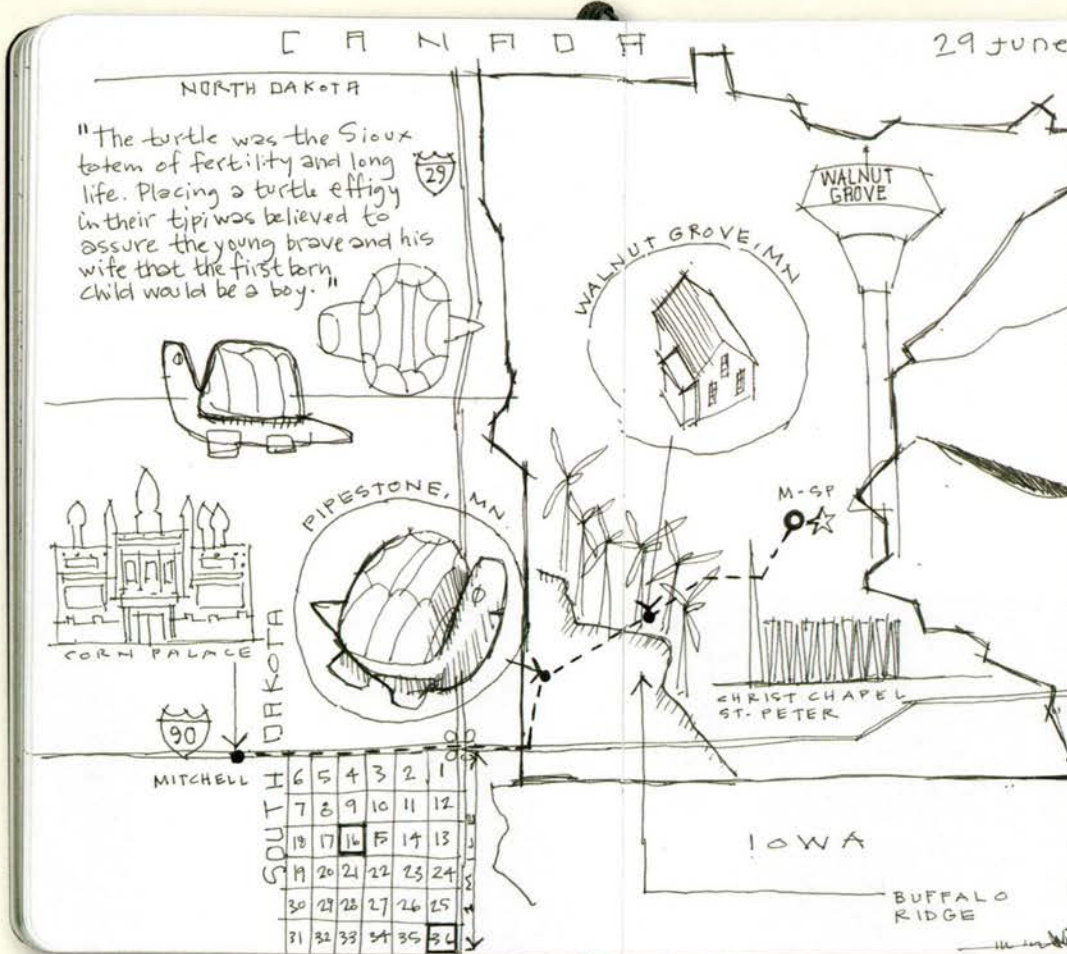 CANADA
29 June
NORTH DAKOTA
"The turtle was the Sioux
totem of fertility and long
life. Placing a turtle effigy
in their tipi was believed to
assure the young brave and his
wife that the first born
child would be a boy."
29
WALNUT
GROVE
WALNUT GROVE, MN
PIPESTONE, MN
M-SP
CORN PALACE
CHRIST CHAPEL
ST. PETER
90
MITCHELL
SOUTH DAKOTA
6 5 4 3 2 1
7 8 9 10 11 12
18 17 16 15 14 13
19 20 21 22 23 24
30 29 28 27 26 25
31 32 33 34 35 36
MILE
IOWA
BUFFALO
RIDGE